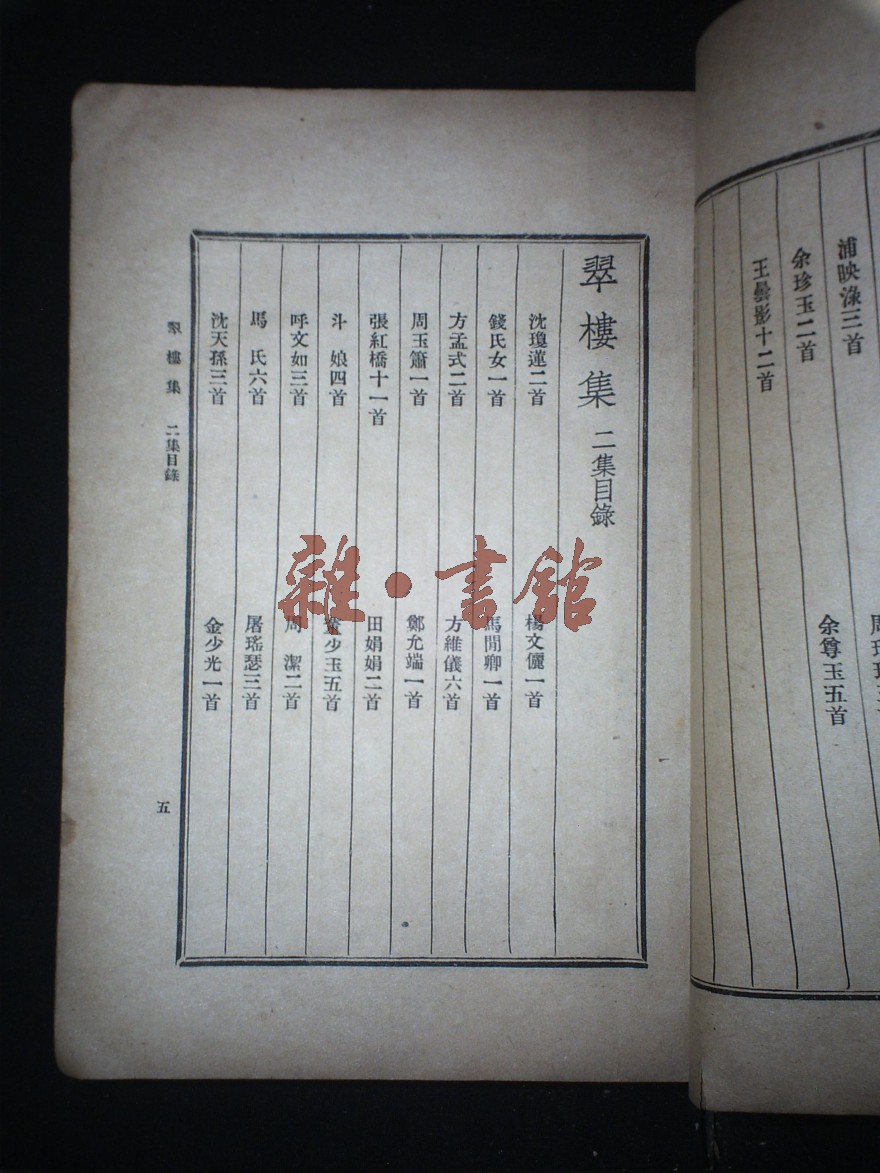 浦映淥三首
余珍玉二首
余尊玉五首
王曇影十二首
翠樓集 二集目錄
沈瓊蓮二首 楊文儷一首
錢氏女一首 馬閒卿一首
方孟式二首 方維儀六首
周玉簫一首 鄭允端一首
張紅橋十一首 田娟娟二首
斗 娘四首 少玉五首
呼文如三首 周 潔二首
馬 氏六首 屠瑤瑟三首
沈天孫三首 金少光一首
翠樓集 二集目錄 五
雜·書館